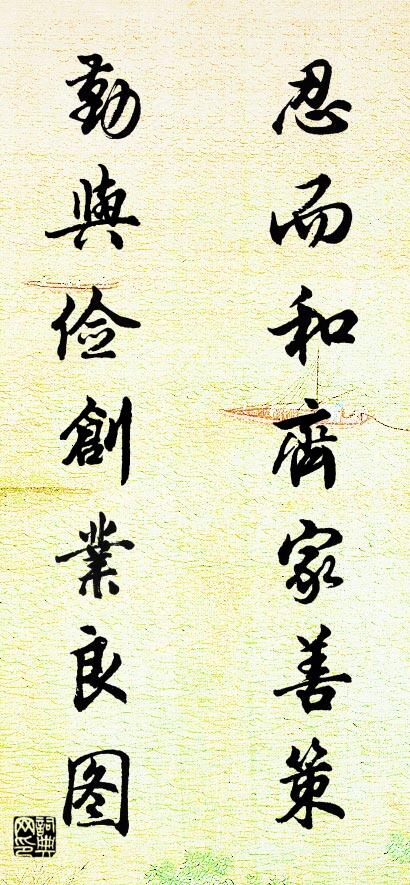 忍而和齊家善策
勤與儉創業良图
詞典网印